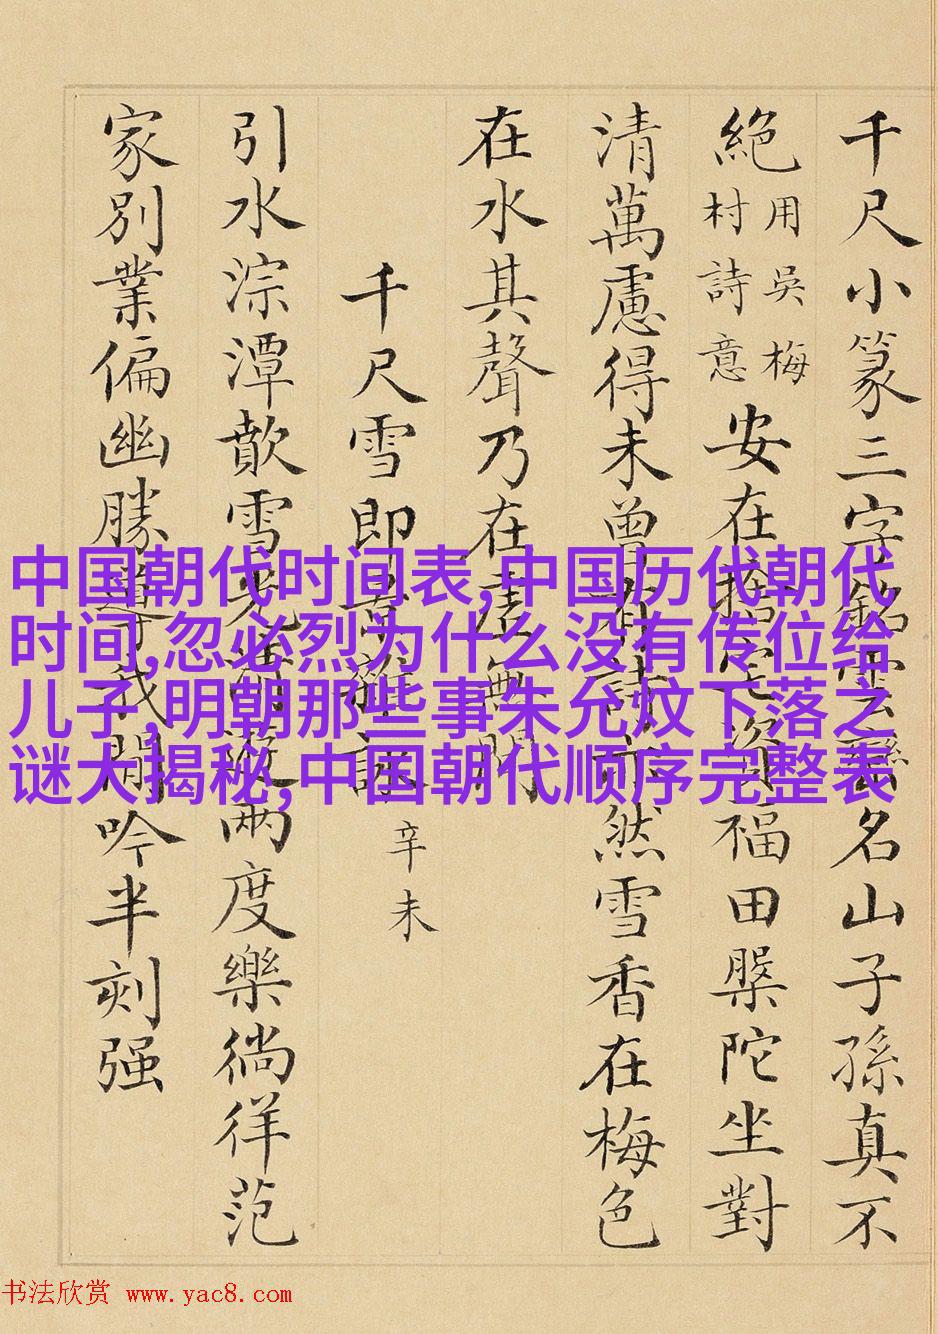 千尺小篆三字銘名山子孫真不
絕
用吳梅
村詩意
安在福田槃陀坐對
清萬慮得未曾然雪香在梅色
在水其聲乃在虛無間
千尺雪即
辛未
引水淙潭歕雪兩度樂徜徉范
家別業偏幽勝我閒吟半刻强
中国朝代时间表,中国历代朝代
时间,忽必烈为什么没有传位给
儿子,明朝那些事朱允炆下落之
谜大揭秘,中国朝代顺序完整表
书法欣赏 www.yac8.com